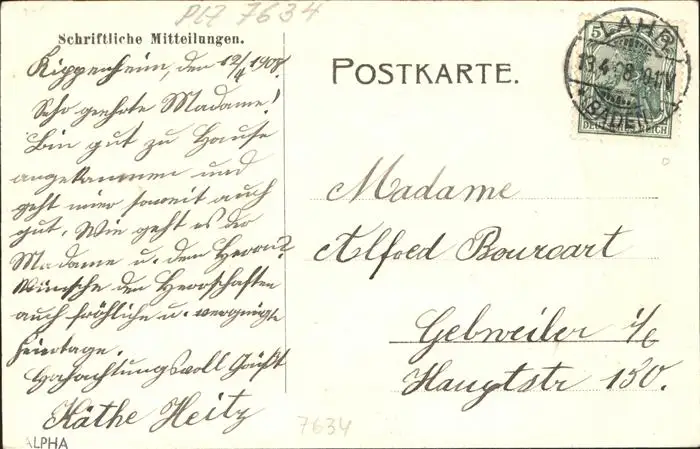 PLZ 7634
Schriftliche Mitteilungen.
Kippenheim, den 12/4 1908
Sehr geehrte Madame!
Bin gut zu Hause
angekommen und
geht mier soweit auch
gut. Wie geht es der
Madame u. dem Herrn?
Wünsche den Herrschaften
auch fröhliche u. vergnügte
Feiertage.
Hochachtungsvoll Grüßt
Käthe Heitz
ALPHA
POSTKARTE.
Madame
Alfred Bourcart
Gebweiler i/E
Hauptstr 130.
7634
5
DEUTSCHES REICH
LAHR
13.4.08. 9-10V
(BADEN)